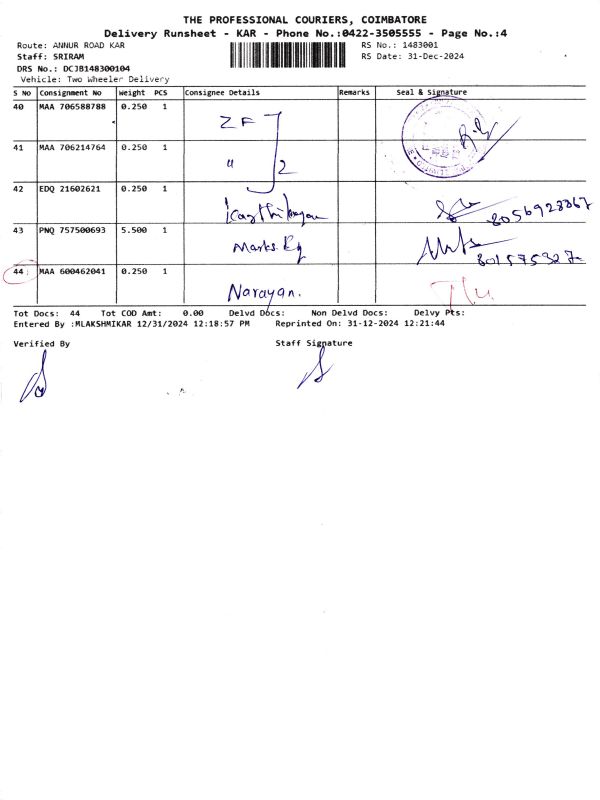 THE PROFESSIONAL COURIERS, COIMBATORE
Delivery Runsheet - KAR - Phone No.:0422-3505555 - Page No.:4
Route: ANNUR ROAD KAR
RS No.: 1483001
Staff: SRIRAM
RS Date: 31-Dec-2024
DRS No.: DCJB148300104
Vehicle: Two Wheeler Delivery
S No Consignment No Weight PCS Consignee Details Remarks Seal & Signature
40 MAA 706588788 0.250 1 ZF
41 MAA 706214764 0.250 1 " 2
42 EDQ 21602621 0.250 1 Karthikeyan 8056928867
43 PNQ 757500693 5.500 1 801575327
44 MAA 600462041 0.250 1 Narayan.
Tot Docs: 44 Tot COD Amt: 0.00 Delvd Docs: Non Delvd Docs: Delvy Pts:
Entered By :MLAKSHMIKAR 12/31/2024 12:18:57 PM Reprinted On: 31-12-2024 12:21:44
Verified By Staff Signature